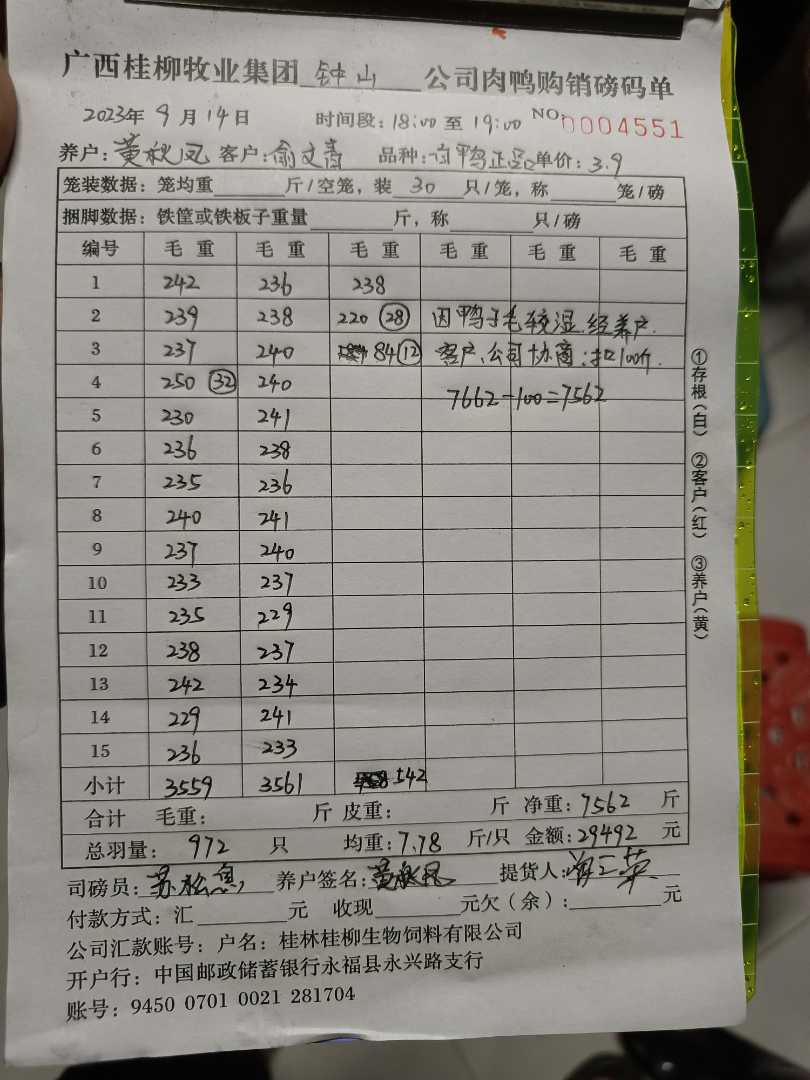 广西桂柳牧业集团 钟山 公司肉鸭购销磅码单
2023年 9月14日 时间段：18:00至19:00 NO 0004551
养户：黄秋凤 客户：俞文青 品种：白鸭正品 单价：3.9
笼装数据：笼均重 斤/空笼，装 30 只/笼，称 笼/磅
捆脚数据：铁筐或铁板子重量 斤，称 只/磅
编号 毛重 毛重 毛重 毛重 毛重 毛重
1 242 236 238
2 239 238 220 (28) 因鸭子毛较湿.经养户.
3 237 240 84 (12) 客户、公司协商：扣100斤.
4 250 (32) 240 7662-100=7562
5 230 241
6 236 238
7 235 236
8 240 241
9 237 240
10 233 237
11 235 229
12 238 237
13 242 234
14 229 241
15 236 233
小计 3559 3561 542
合计 毛重： 斤 皮重： 斤 净重：7562 斤
总羽量：972 只 均重：7.78 斤/只 金额：29492 元
司磅员：苏 养户签名：黄秋凤 提货人：
付款方式：汇 元 收现 元欠（余）： 元
公司汇款账号：户名：桂林桂柳生物饲料有限公司
开户行：中国邮政储蓄银行永福县永兴路支行
账号：9450 0701 0021 281704
①存根（白） ②客户（红） ③养户（黄）